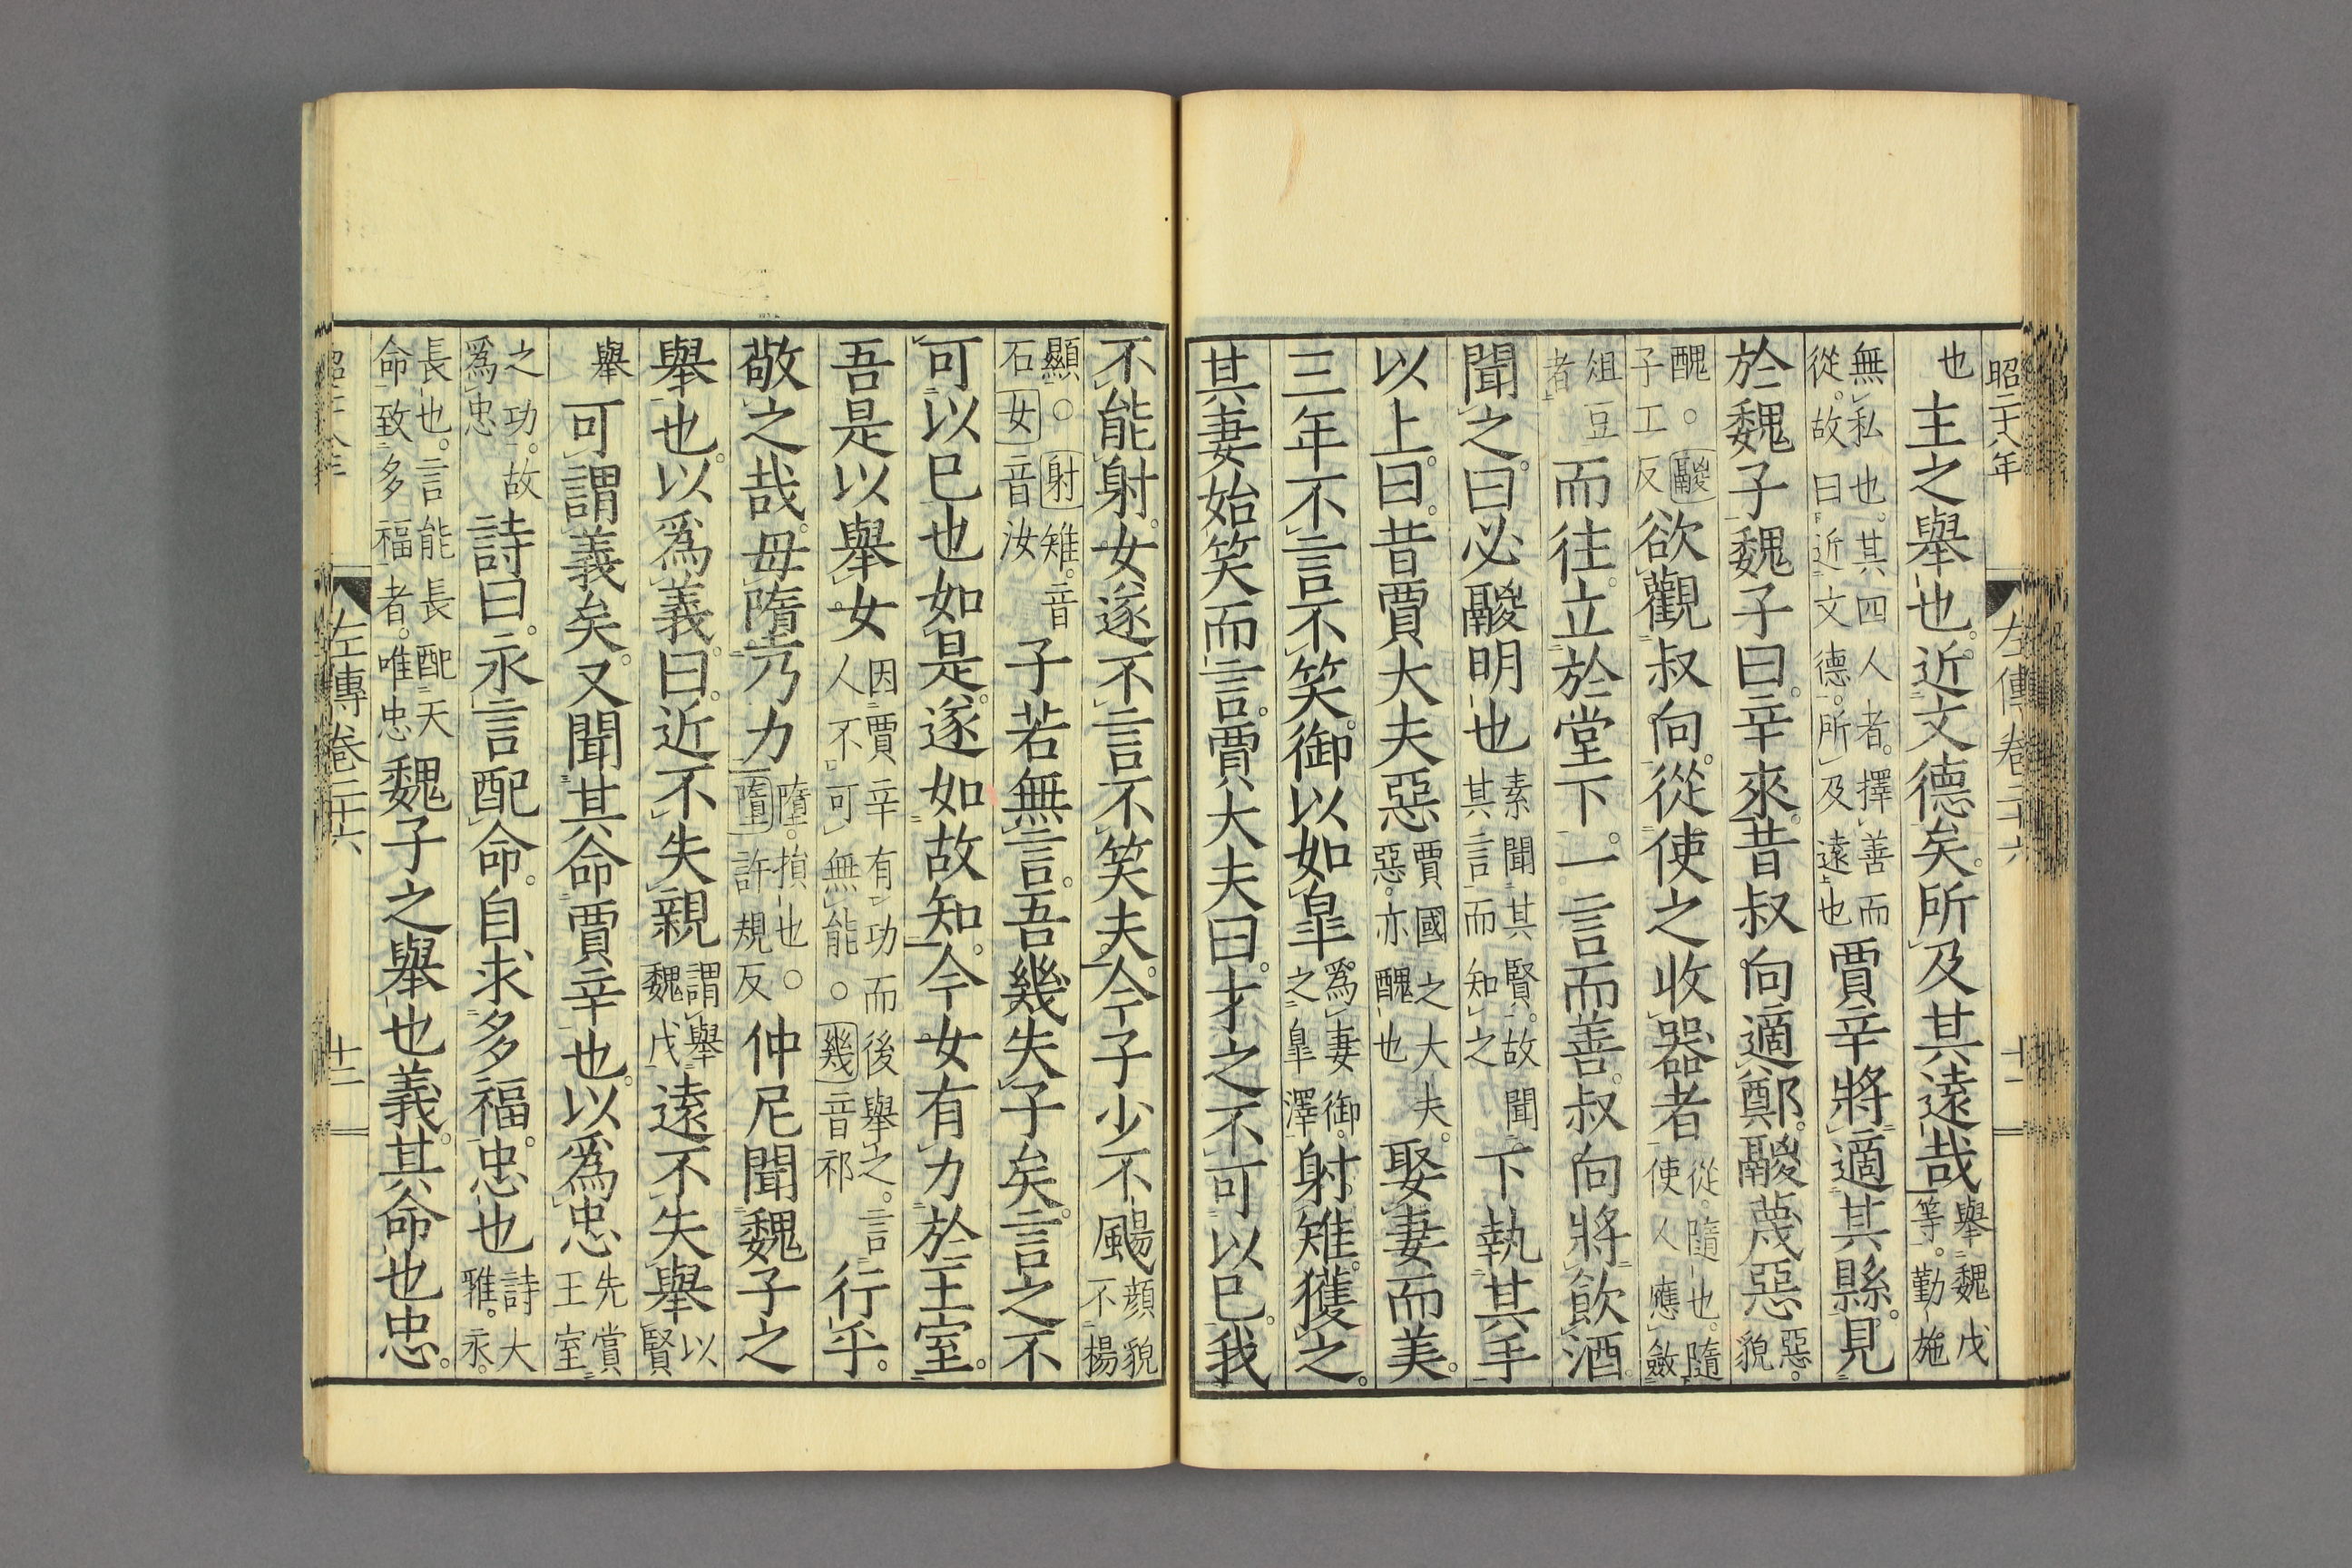 昭二十八年 左傳卷二十六 十二
也主之舉也。近文德矣。所及其遠哉舉魏戊等。勤施
無私也。其四人者。擇善而從。故曰近文德。所及遠也賈辛將適其縣。見
於魏子魏子曰。辛來。昔叔向適鄭。鬷蔑惡惡。貌
醜。○鬷子工反欲觀叔向。從使之收器者從。隨也。隨使人應斂
俎豆者而往。立於堂下。一言而善。叔向將飮酒。
聞之。曰必鬷明也素聞其賢。故聞其言而知之下執其手
以上。曰。昔賈大夫惡賈國之大夫。惡。亦醜也娶妻而美。
三年不言不笑。御以如皐。爲妻御。之皐澤射雉。獲之。
其妻始笑而言。賈大夫曰。才之不可以巳。我
不能射。女遂不言不笑夫。今子少不颺顏貌不揚
顯。○射雉。音石女音汝子若無言。吾幾失子矣。言之不
可以巳也如是。遂如故知。今女有力於王室。
吾是以舉。女因賈辛有功而後舉之。言人不可無能。○幾音祁行乎。
敬之哉。毋墮乃力墮。損也。○墮許規反仲尼聞魏子之
舉也。以爲義。曰。近不失親謂舉魏戊遠不失舉以賢
舉可謂義矣。又聞其命賈辛也。以爲忠先賞王室
之功。故爲忠詩曰。永言配命。自求多福。忠也詩大雅。永。
長也。言能長配天命致多福者。唯忠魏子之舉也義。其命也忠。
昭二十八年 左傳卷二十六 十二